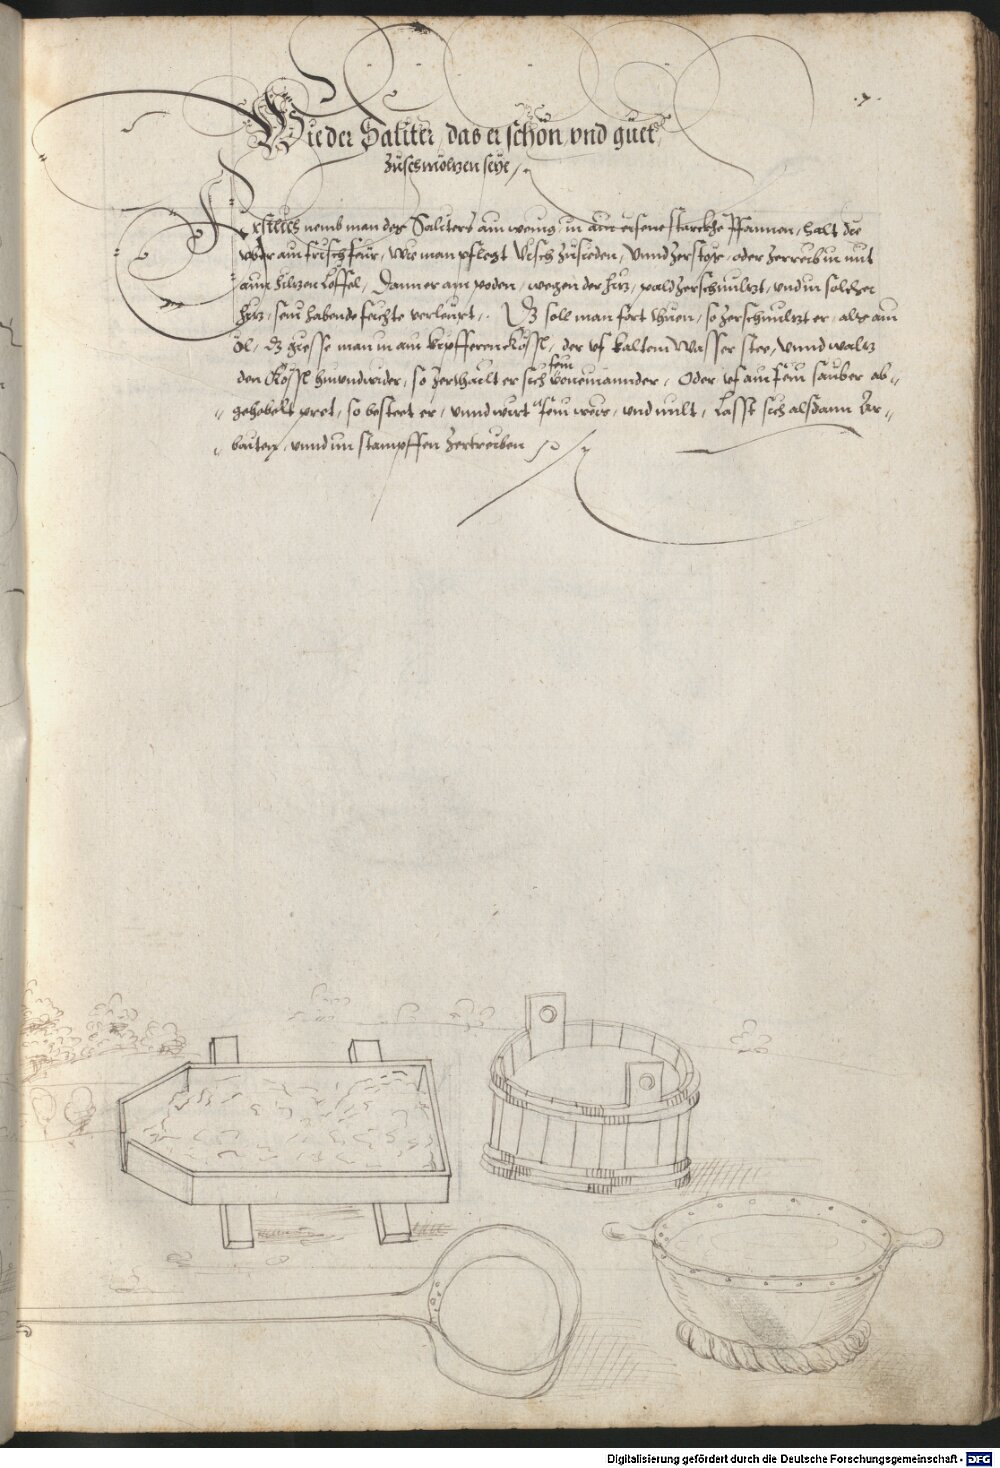 .7.
Wie der Saliter, das er schön, vnd guet,
Zuschmöltzen seÿe,
Erstlich nemb man der Saliters ain wenig, in ain eisene starckhe Pfannen, halt die
vber ain frisch feür, Wie man pflegt Visch zu sieden, Vnnd Zerstosz, oder Zerreib in mit
aim hiltzen Löffel, Dann er am poden, wegen der hitz, pald Zerschmiltzt, vnd in solcher
hitz, sein habende feichte verleürt, Dz soll man fort thuen, so Zerschmiltzt er, als ain
öl, dz giesse man in ain kupfferen Kössl, der vf kaltem Wasser stee, Vnnd waltz
den Kössl hin vnd wider, so Zerthailt er sich fein voneinannder, Oder vf ain fein sauber ab-
gehobelt pret, so besteet er, vnnd wirt fein werr, vnd milt, Lasst sich alsdann Ar-
baiten, vnnd im stampffen Zertreiben
Digitalisierung gefördert durch die Deutsche Forschungsgemeinschaft - DFG